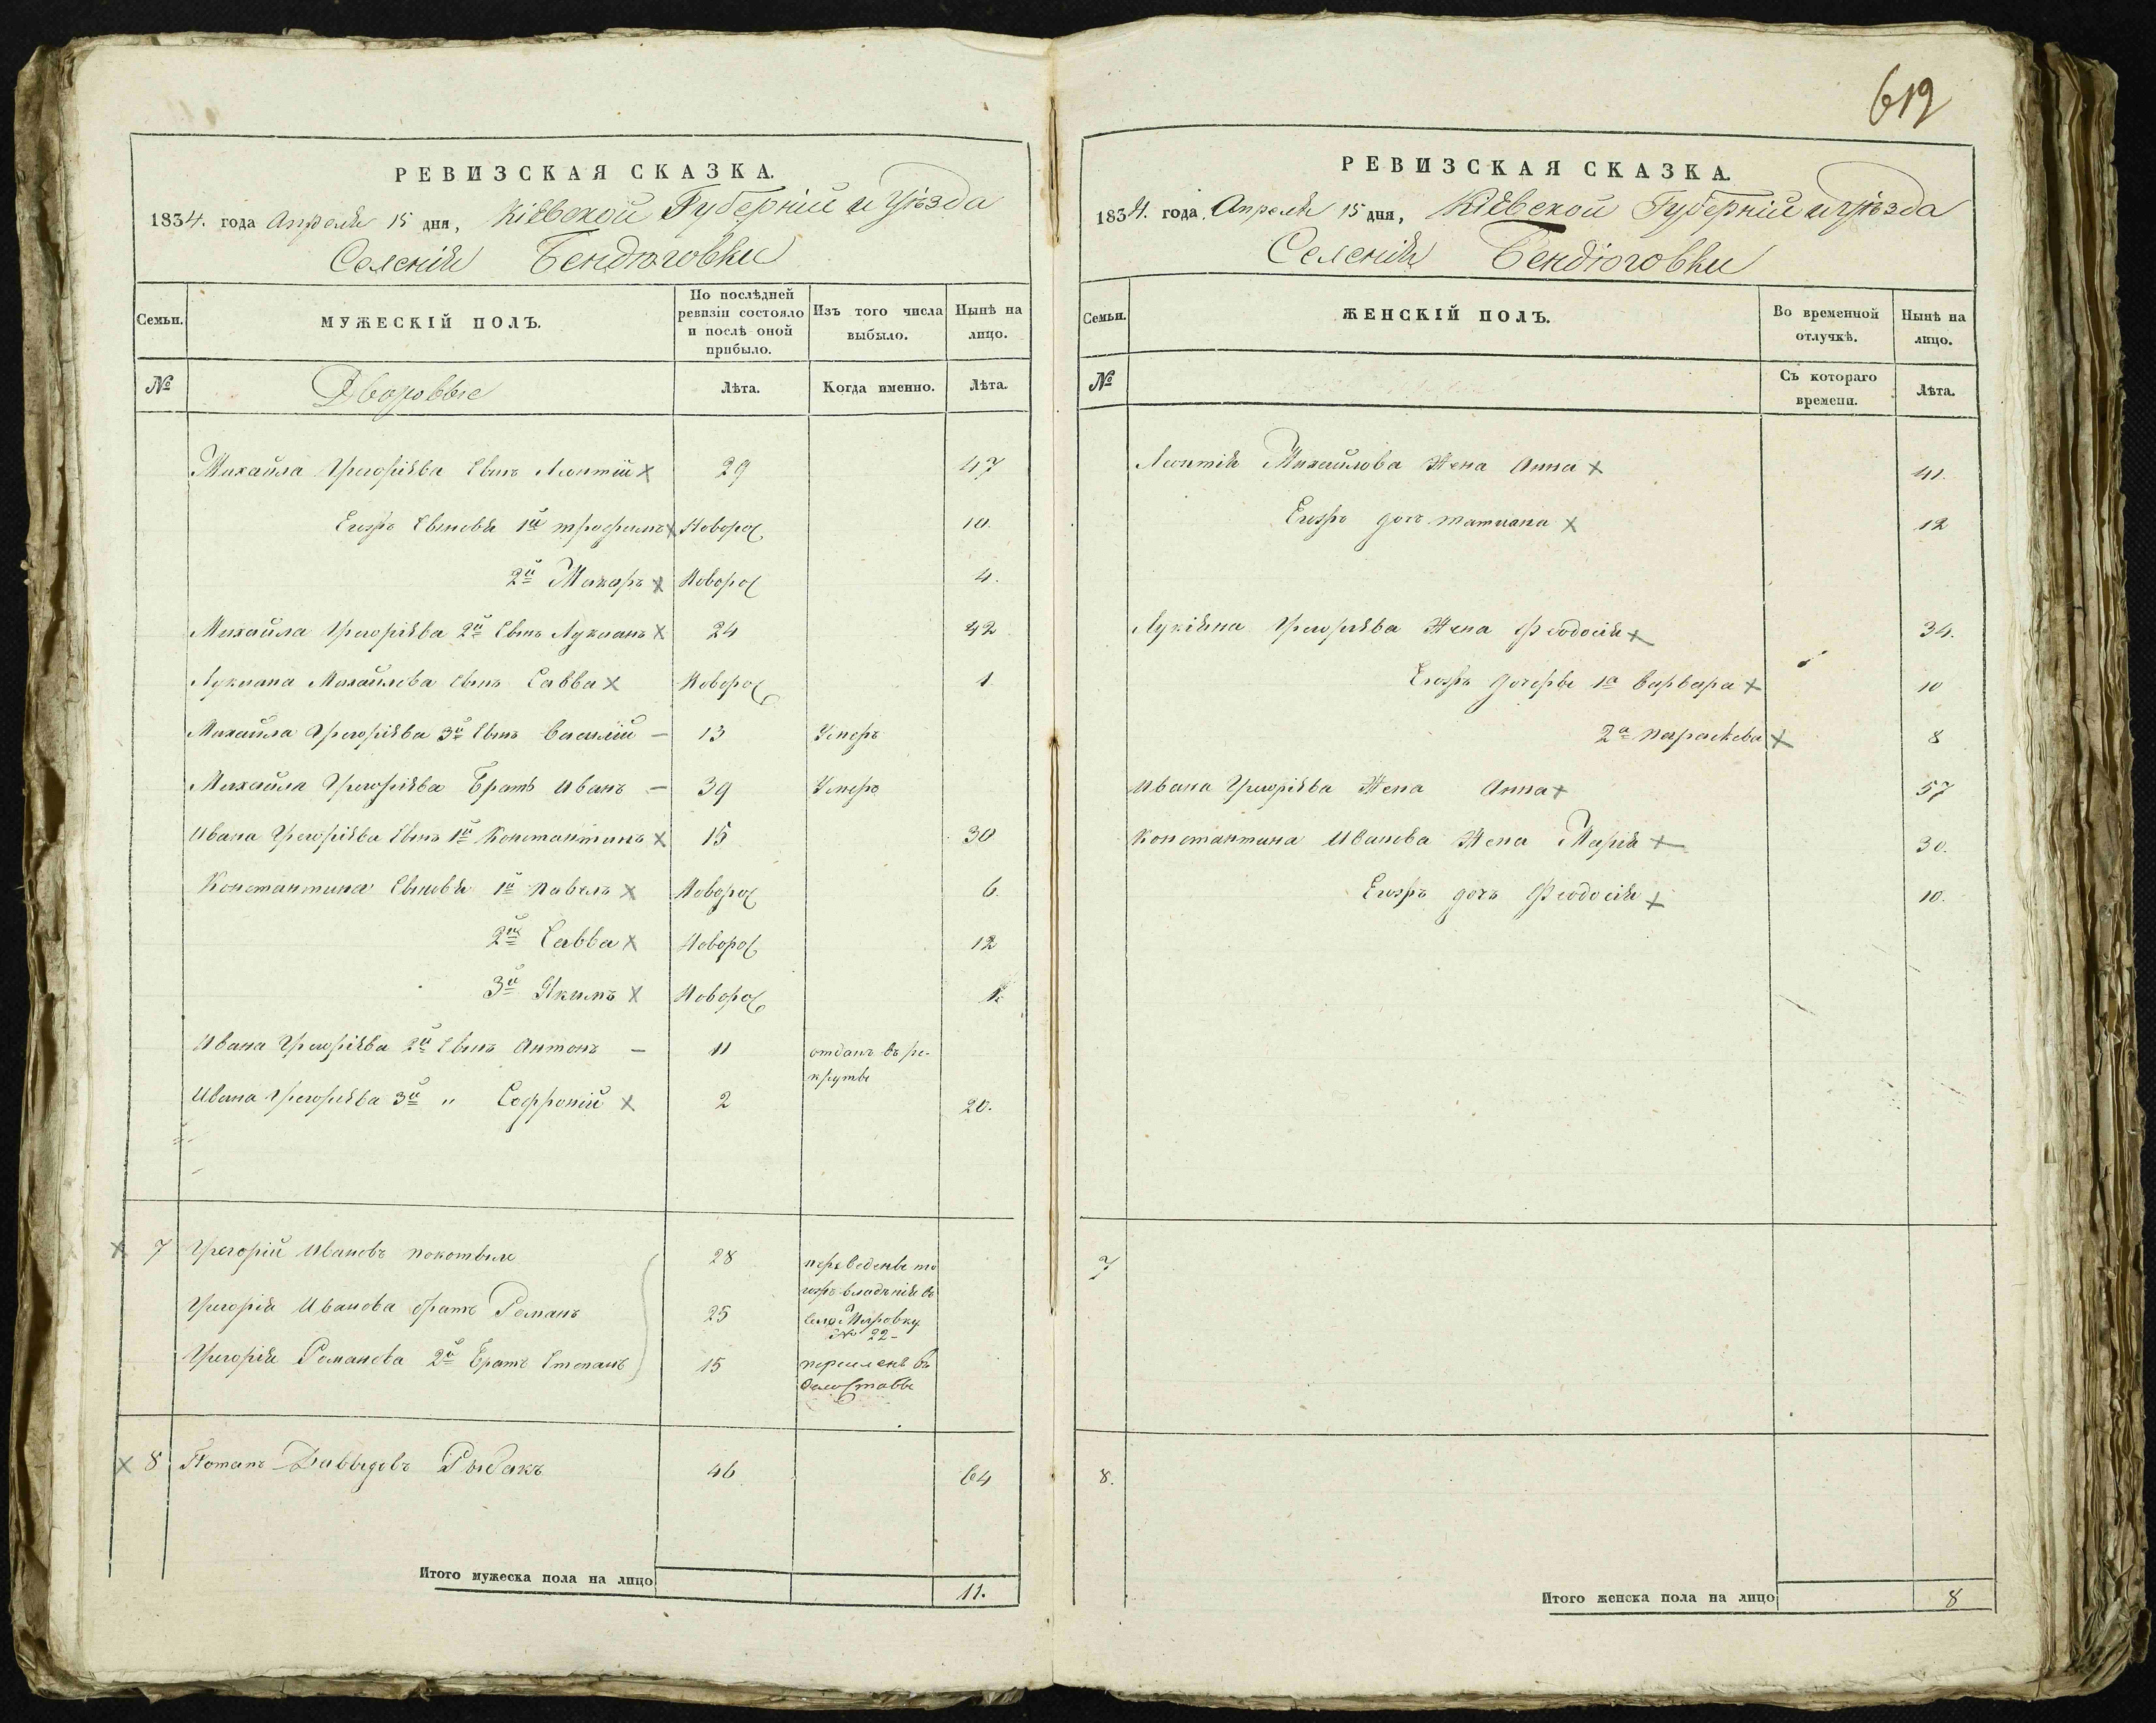 612
РЕВИЗСКАЯ СКАЗКА.
1834. года Апреля 15 дня, Кіевской Губерніи и Уѣзда
Селенія Бендюговки
Семьи.
МУЖЕСКІЙ ПОЛЪ.
По послѣдней ревизіи состояло и послѣ оной прибыло.
Изъ того числа выбыло.
Нынѣ на лицо.
№
Дворовые
Лѣта.
Когда именно.
Лѣта.
Михайла Григоріева Сынъ Леонтій х 29 47
Егожъ Сыновья 1й трофимъ х Новорож 10.
2й Макаръ х Новорож 4.
Михайла Григоріева 2й Сынъ Лукианъ х 24 42
Лукиана Михайлова Сынъ Савва х Новорож 1
Михайла Григоріева 3й Сынъ Василій — 13 Умеръ
Михайла Григоріева Братъ Иванъ — 39 Умеръ
Ивана Григоріева Сынъ 1й Константинъ х 15 30
Константина Сыновья 1й Павелъ х Новорож 6.
2й Савва х Новорож 12
3й Якимъ х Новорож 1.
Ивана Григоріева 2й Сынъ Антонъ — 11 отданъ въ ре-
круты
Ивана Григоріева 3й " Софроній х 2 20.
х 7 Григорій Ивановъ Покотыло 28 переведены то
гожъ владѣнія въ
Григорія Иванова братъ Романъ 25 село
№ 22-
Григорія Романова 2й Братъ Степанъ 15 въ
х 8 Потапъ Давыдовъ Рыбакъ 46 64
Итого мужеска пола на лицо 11.
РЕВИЗСКАЯ СКАЗКА.
1834. года Апреля 15 дня, Кіевской Губерніи и Уѣзда
Селенія Бендюговки
Семьи.
ЖЕНСКІЙ ПОЛЪ.
Во временной отлучкѣ.
Нынѣ на лицо.
№
Съ котораго времени.
Лѣта.
Леонтія Михайлова Жена Анна х 41.
Егожъ дочь татиана х 12
Лукіяна Григоріева Жена Феодосія х 34.
Егожъ дочери 1а Варвара х 10
2а Параскева х 8
Ивана Григоріева Жена Анна х 57
Константина Иванова Жена Марія х 30.
Егожъ дочь Феодосія х 10.
7
8.
Итого женска пола на лицо 8